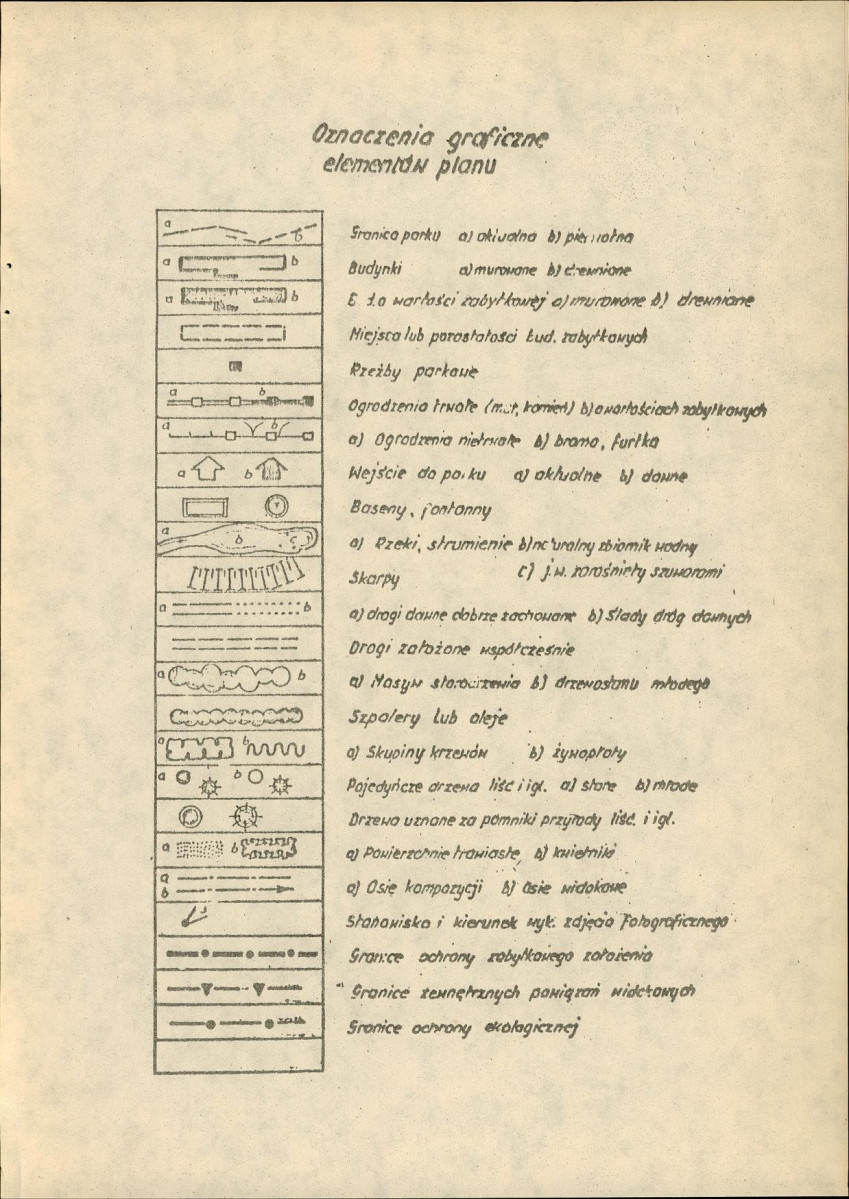 Oznaczenia graficzne
elementów planu
a b Granica parku a) aktualna b) pierwotna
a b Budynki a) murowane b) drewniane
a b o wartości zabytkowej a) murowane b) drewniane
Miejsca lub pozostałości bud. zabytkowych
Rzeźby parkowe
a b Ogrodzenia trwałe (mur, kamień) b) o wartościach zabytkowych
a b a) Ogrodzenia nietrwałe b) brama, furtka
a b Wejście do parku a) aktualne b) dawne
Baseny, fontanny
a b c a) Rzeki, strumienie b) naturalny zbiornik wodny
c) j.w. zarośnięty szuwarami
Skarpy
a b a) drogi dawne dobrze zachowane b) Ślady dróg dawnych
Drogi założone współcześnie
a b a) Masyw starodrzewia b) drzewostanu młodego
Szpalery lub aleje
a b a) Skupiny krzewów b) żywopłoty
a b Pojedyńcze drzewa liść i igl. a) stare b) młode
Drzewa uznane za pomniki przyrody liść. i igl.
a b a) Powierzchnie trawiaste b) kwietniki
a b a) Osie kompozycji b) Osie widokowe
3 Stanowisko i kierunek wyk. zdjęcia fotograficznego
Granice ochrony zabytkowego założenia
Granice zewnętrznych powiązań widokowych
Granice ochrony ekologicznej